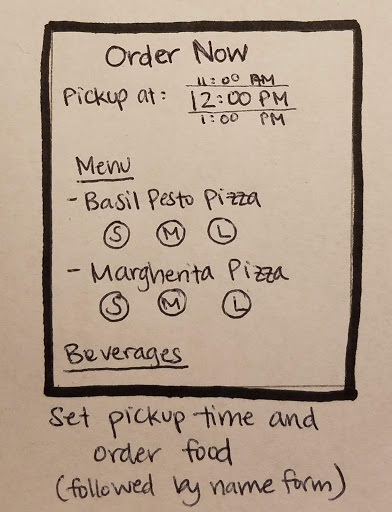 Order Now
11:00 AM
Pickup at: 12:00 PM
1:00 PM
Menu
- Basil Pesto Pizza
S M L
- Margherita Pizza
S M L
Beverages
Set pickup time and
order food
(followed by name form)